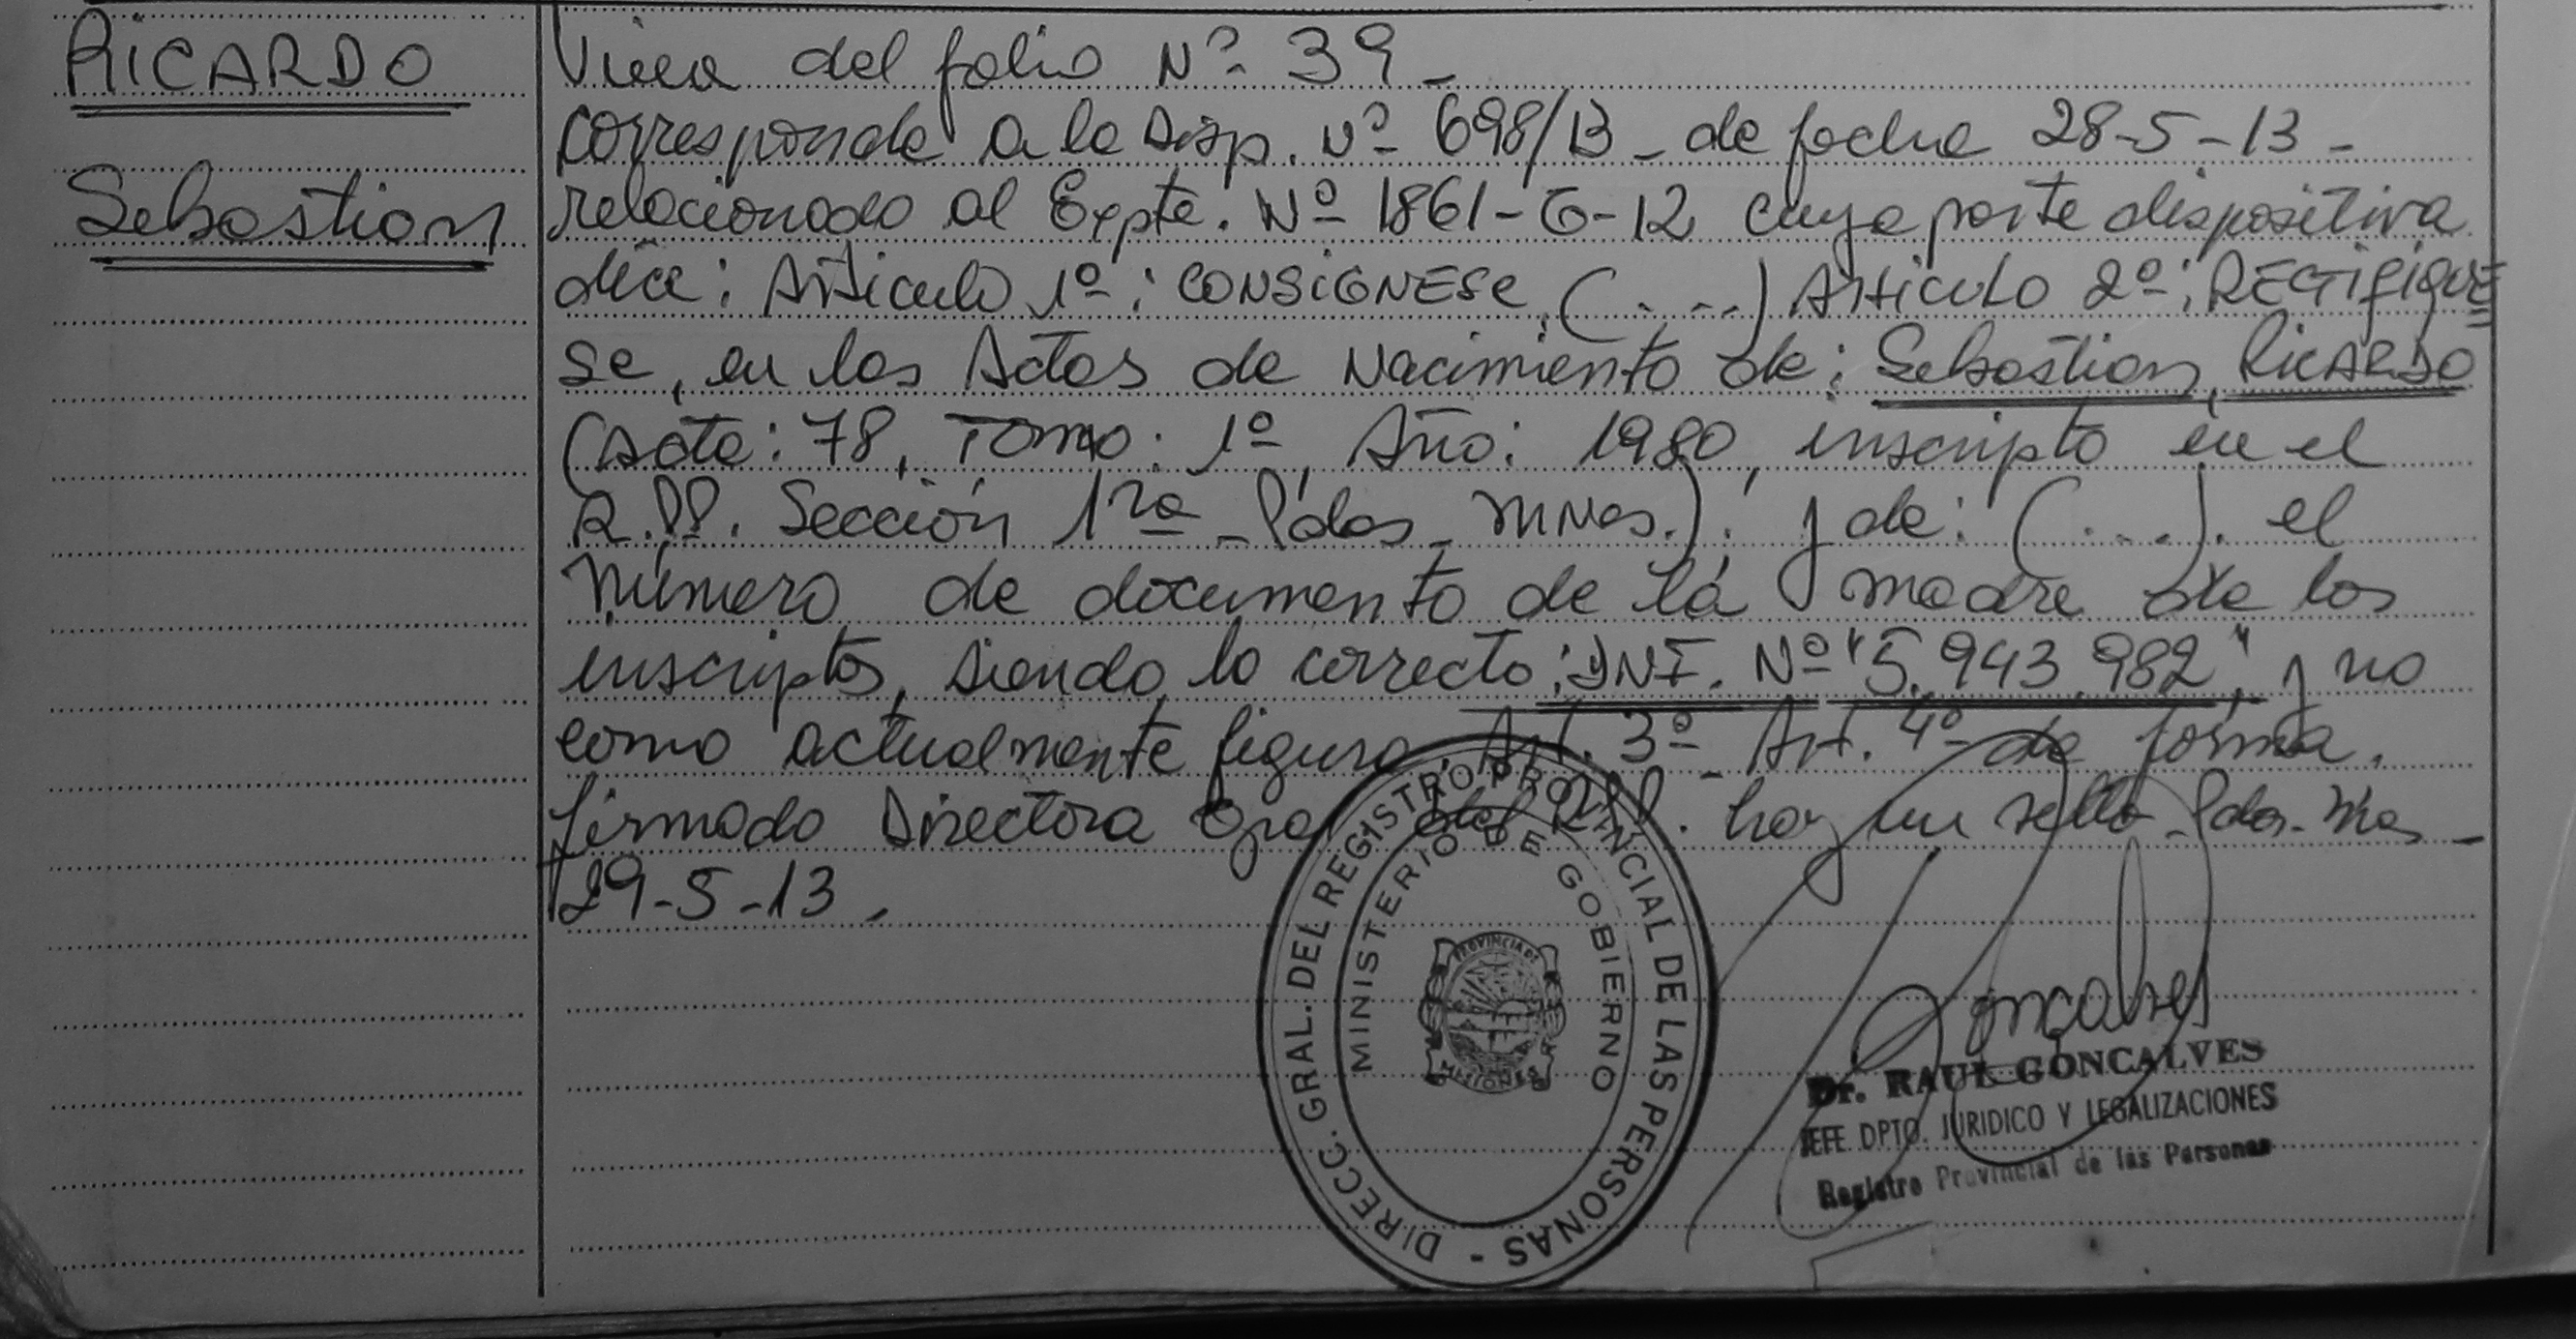 RICARDO
Sebastian
Viene del folio Nº 39 -
Corresponde a la Disp. Nº 698/13 - de fecha 28-5-13 -
relacionado al Expte. Nº 1861-G-12 cuya parte dispositiva
dice: Artículo 1º: CONSIGNESE, (....) Artículo 2º: RECTIFIQUE
se, en las Actas de Nacimiento de: Sebastian, RICARDO
(Acta: 78, Tomo: 1º, Año: 1980, inscripto en el
R.P.P. Sección 1ra - Pdas - Mnes.). y de: (....). el
Número de documento de la madre de los
inscriptos, siendo lo correcto: "DNI. Nº "5.943.982", y no
como actualmente figura. Art. 3º - Art. 4º de forma.
firmado Directora Gral del R.P.P. hay un sello - Pdas - Mnes -
29-5-13.
DIRECC. GRAL. DEL REGISTRO PROVINCIAL DE LAS PERSONAS -
MINISTERIO DE GOBIERNO
PROVINCIA DE
MISIONES
Goncalves
Dr. RAUL GONCALVES
JEFE DPTO. JURIDICO Y LEGALIZACIONES
Registro Provincial de las Personas